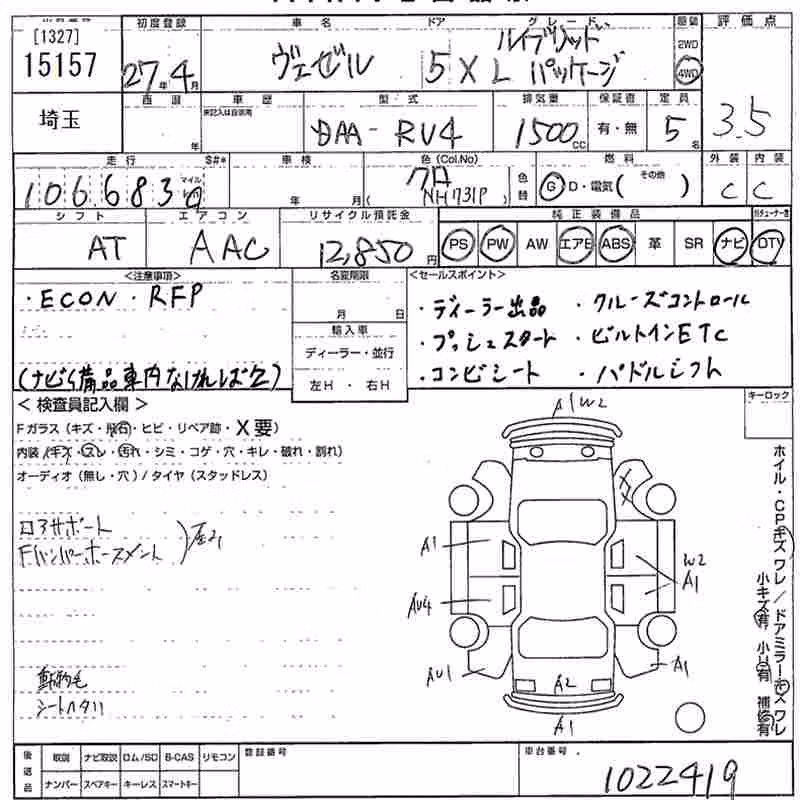 [1327]
15157
初度登録
27年4月
車名
ヴェゼル
ドア
5
グレード
ハイブリッド
X L パッケージ
駆動
2WD
4WD
評価点
3.5
埼玉
西暦
年
車歴
未記入は自家用
型式
DAA-RU4
排気量
1500cc
保証書
有・無
定員
5名
走行
106683
マイル
S#*
車検
年 月
色(Col.No)
クロ
( NH731P )
色替
燃料
G D・電気( その他 )
外装
C
内装
C
シフト
AT
エアコン
AAC
リサイクル預託金
12,850円
純正装備品
PS PW AW エアB ABS 革 SR ナビ DTV
<注意事項>
・ECON ・RFP
(ナビ・備品車内なければ欠)
名変期限
月 日
輸入車
ディーラー・並行
左H ・ 右H
<セールスポイント>
・ディーラー出品 ・クルーズコントロール
・プッシュスタート ・ビルトインETC
・コンビシート ・パドルシフト
<検査員記入欄>
Fガラス(キズ・飛石・ヒビ・リペア跡・X要)
内装(キズ・スレ・汚れ・シミ・コゲ・穴・キレ・破れ・割れ)
オーディオ(無し・穴)/タイヤ(スタッドレス)
コアサポート
Fバンパーホースメント
動物毛
シートヘタリ
キーロック
A1 W2
A1
W2
A1
AU4
AU1
A1
A2
A1
ホイル・CPキズ ワレ/ドアミラーキズ ワレ
小キズ有 小U有 補修有
後送品
取説 ナビ取説 ロム/SD B-CAS リモコン
ナンバー スペアキー キーレス スマートキー
登録番号
車台番号
1022419